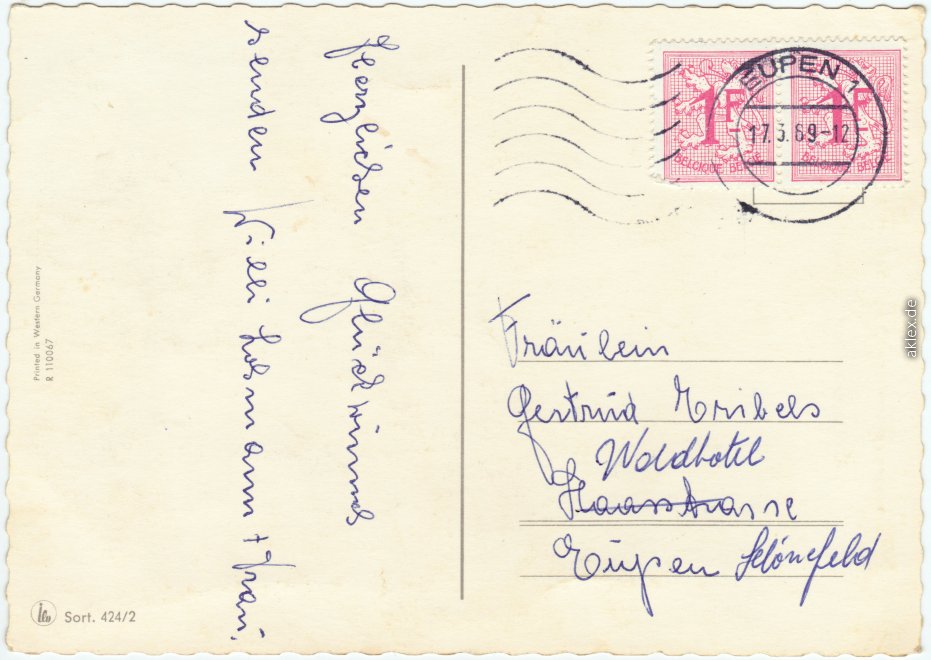 Herzlichen Glückwunsch
senden Willi Losmann + Frau.
Printed in Western Germany
R 110067
Sort. 424/2
EUPEN 1
17.3.69-12
1F
BELGIQUE BE
1F
BELGIQUE BE
Fräulein
Gertrud Kribels
Waldhotel
Haasstrasse
Eupen Schönefeld
aklex.de